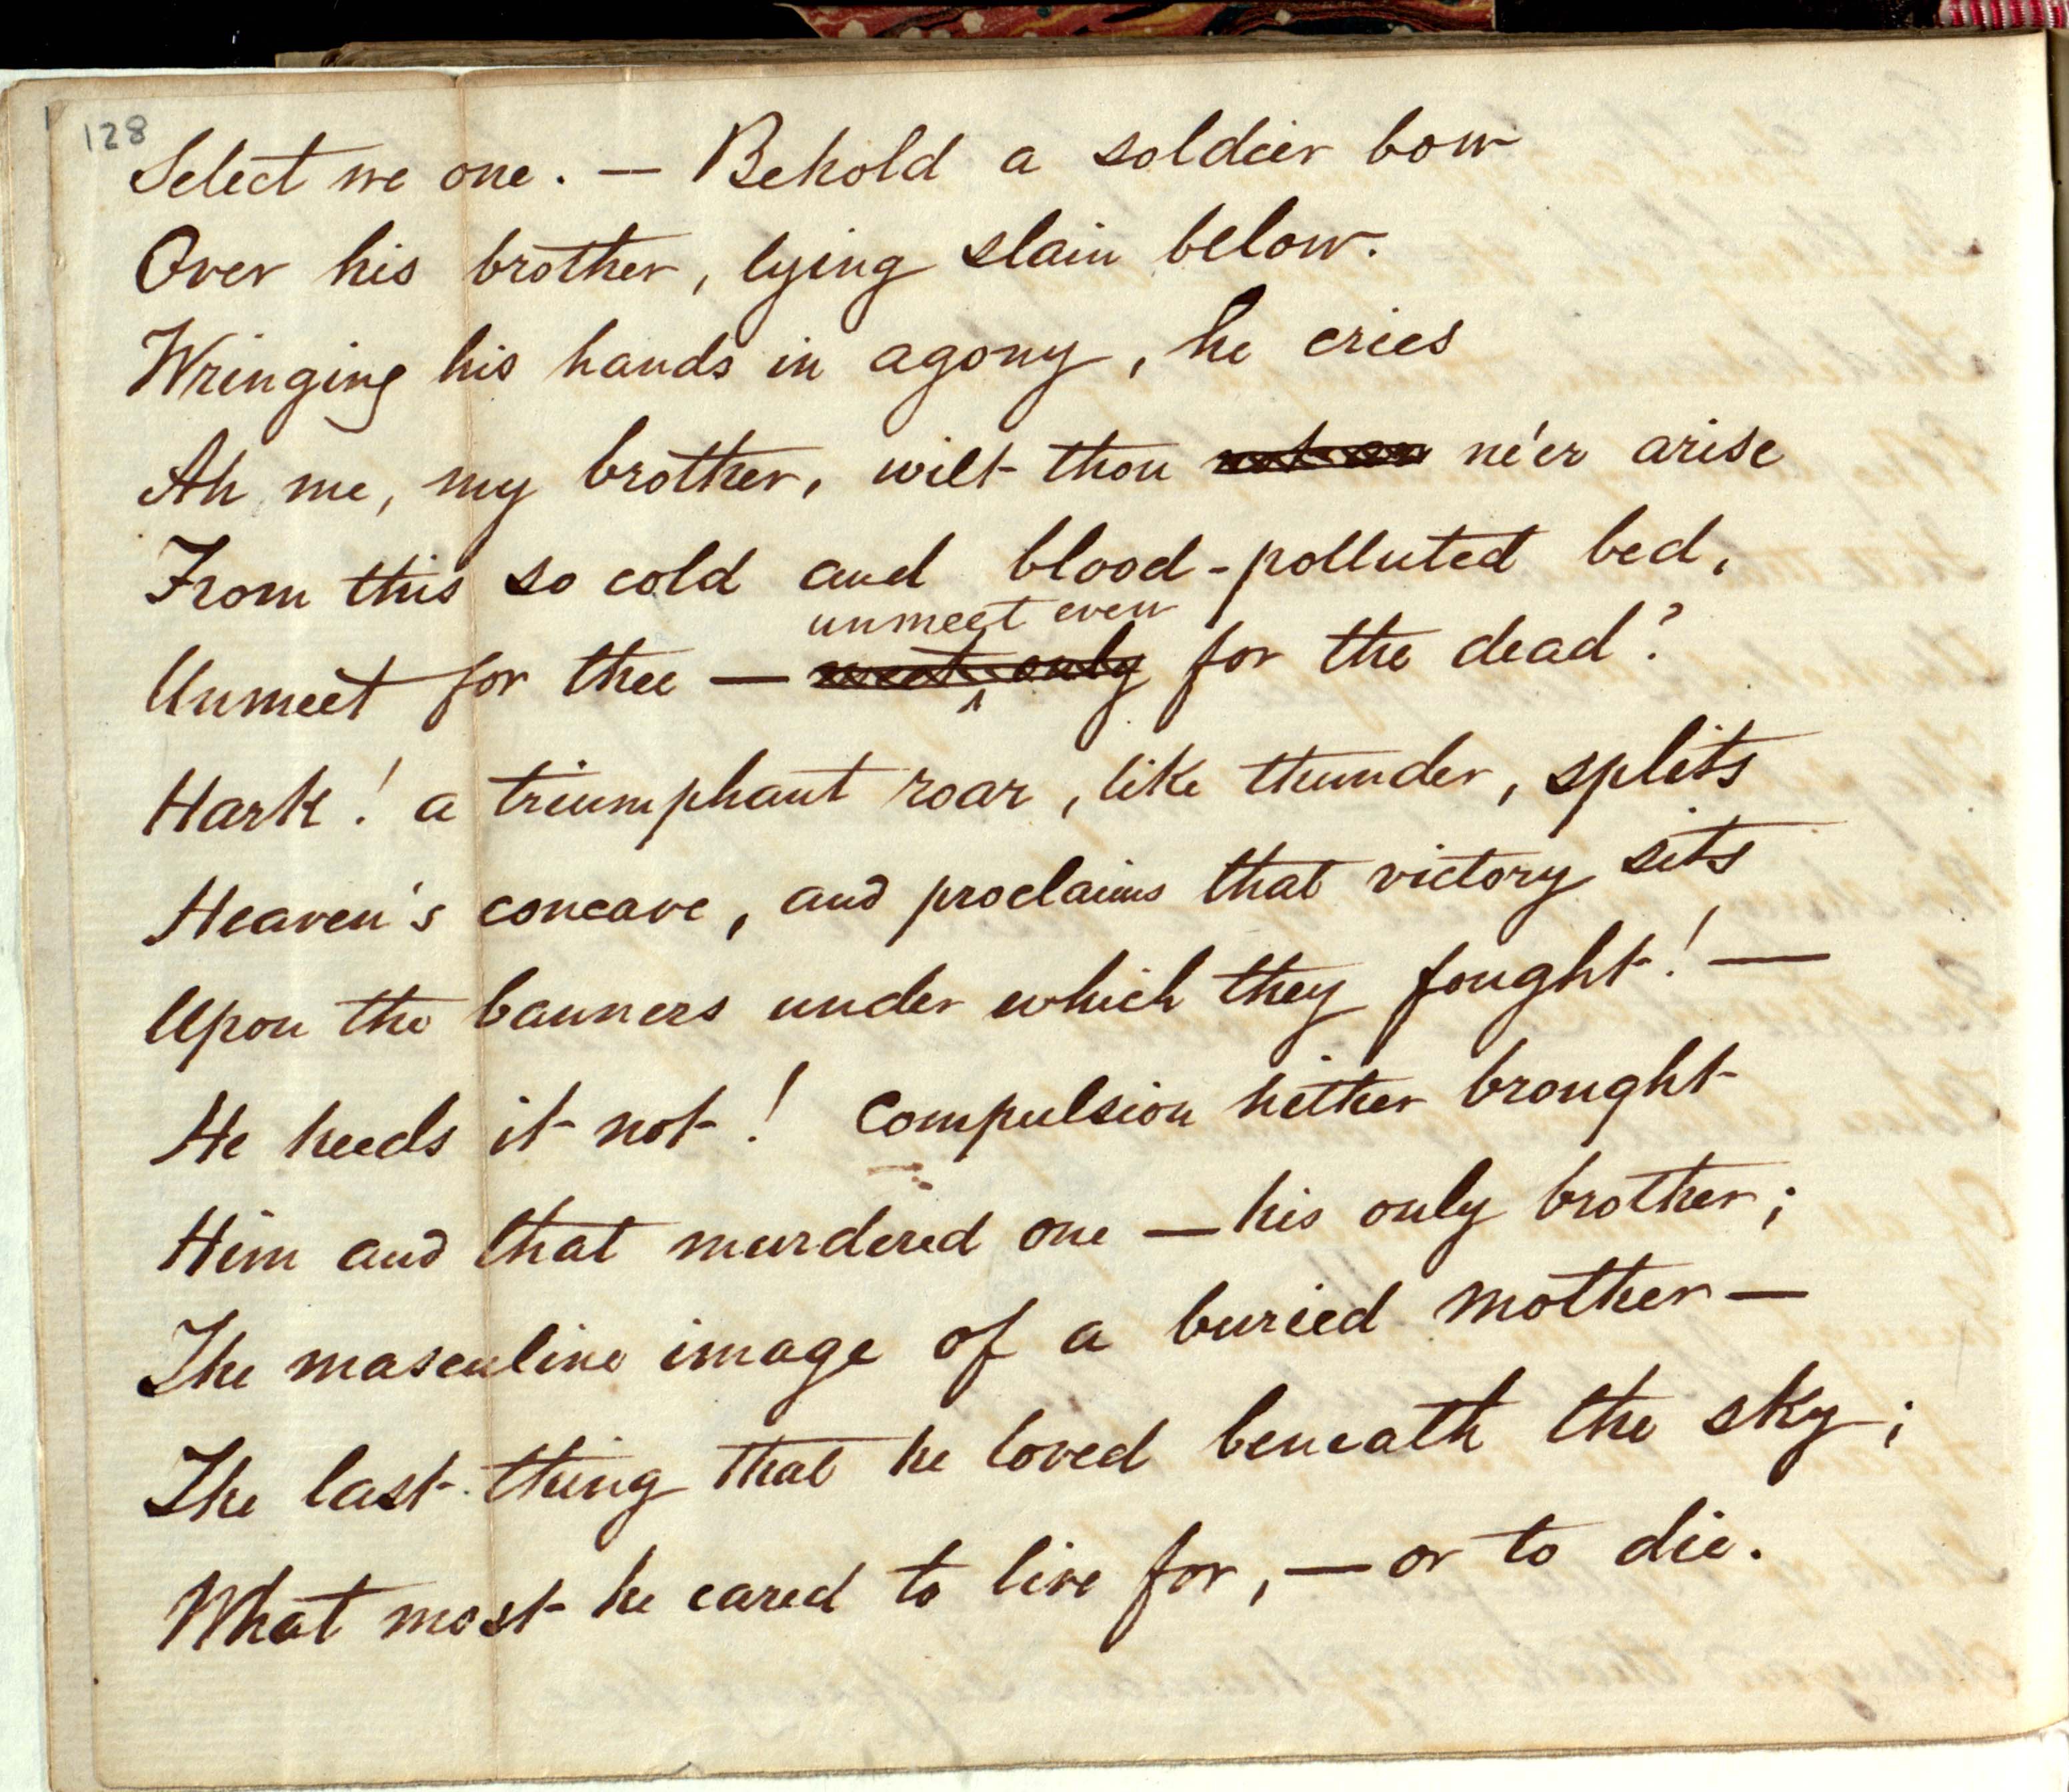 128
Select we one. — Behold a soldier bow
Over his brother, lying slain below.
Wringing his hands in agony, he cries
Ah me, my brother, wilt thou ne'er arise
From this so cold and blood-polluted bed,
unmeet even
Unmeet for thee — meet only for the dead?
Hark! a triumphant roar, like thunder, splits
Heaven's concave, and proclaims that victory sits
Upon the banners under which they fought! —
He heeds it not! Compulsion hither brought
Him and that murdered one — his only brother;
The masculine image of a buried mother —
The last thing that he loved beneath the sky;
What most he cared to live for, — or to die.